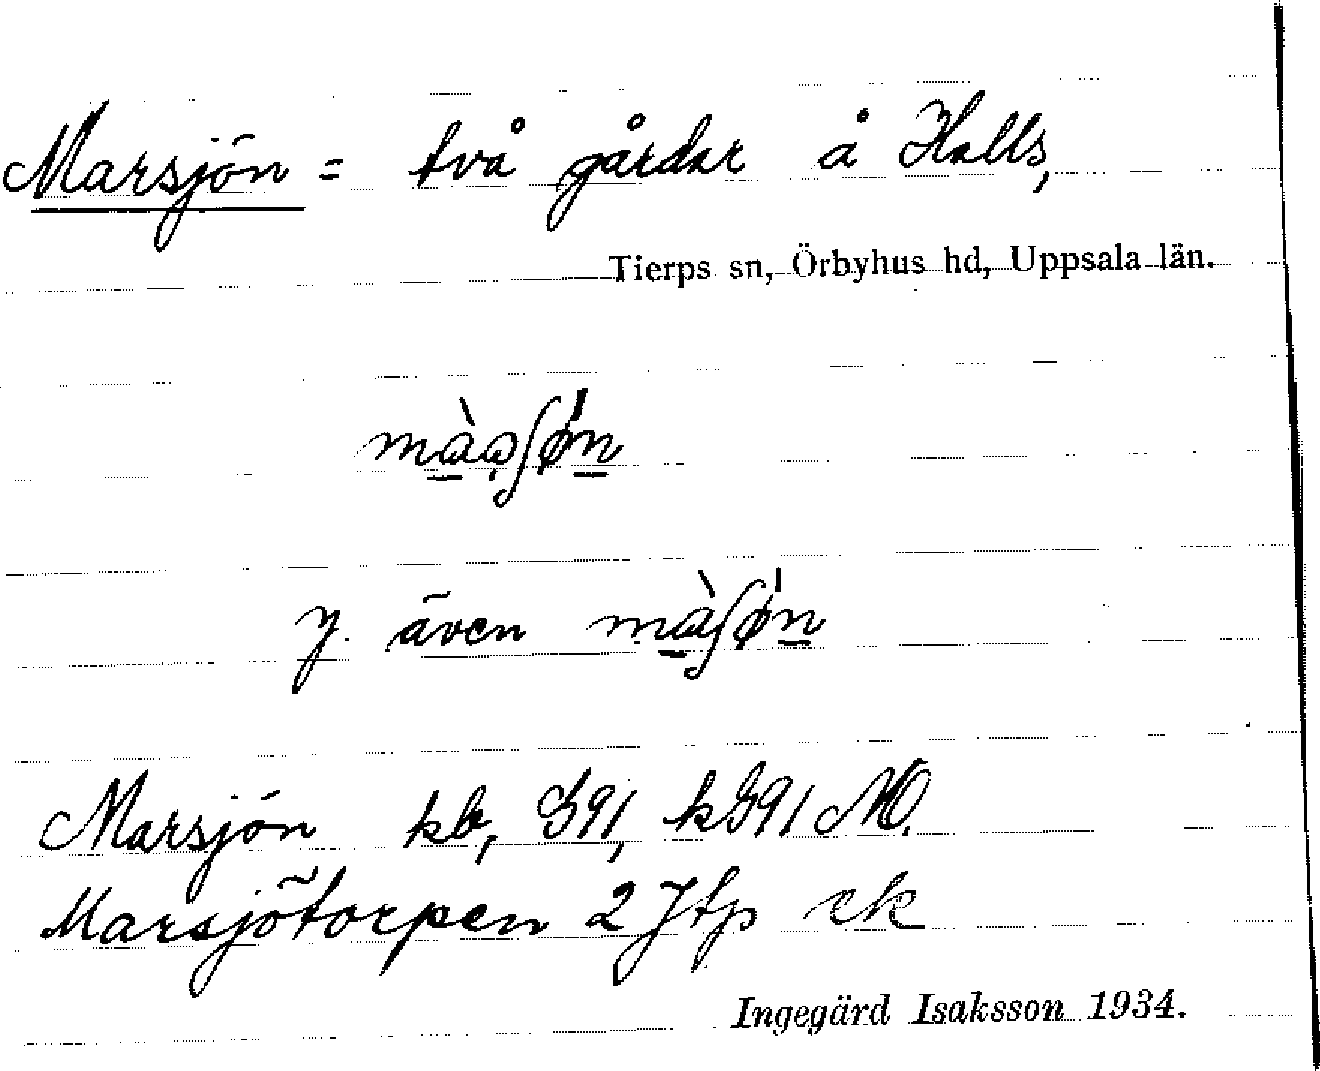 Marsjön = två gårdar å Halls,
Tierps sn, Örbyhus hd, Uppsala län.
y. även
Marsjön kb, G91, kG91 MO.
Marsjötorpen 2 Jtp ek
Ingegärd Isaksson 1934.